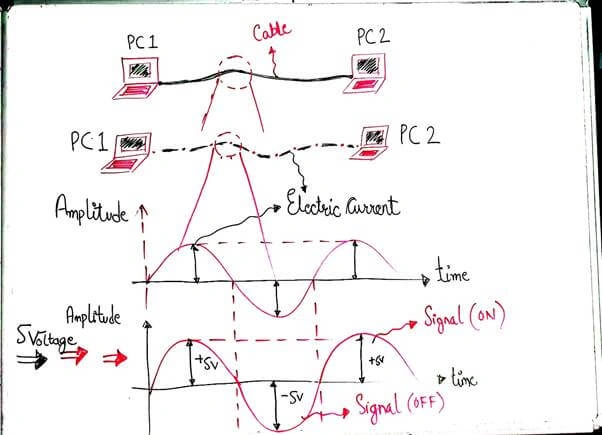 Cable
PC 1
PC 2
PC1
PC 2
Amplitude
Electric Current
time
Amplitude
5Voltage
Signal (ON)
+5v
+5v
-5v
time
Signal (OFF)